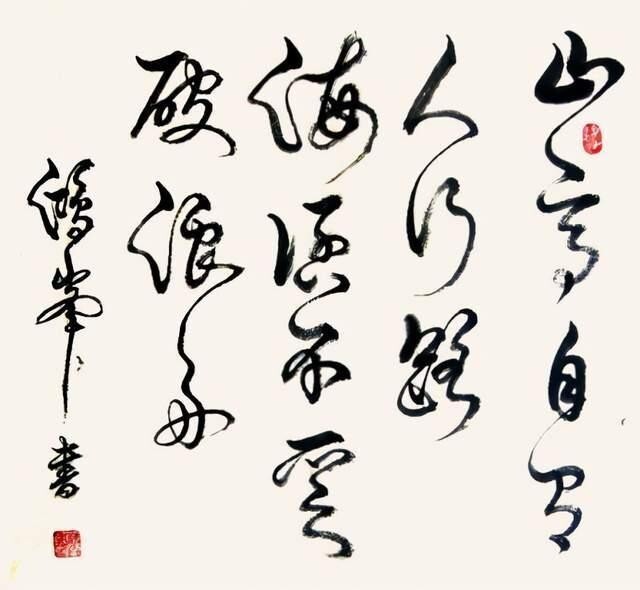 山高自有
人行路
海深不
破浪舟
鸿峰书